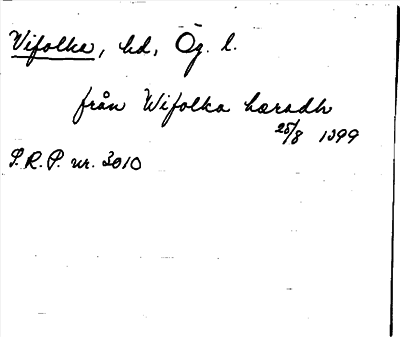 Vifolka, hd, Ög. l.
från Wifolka hæradh
25/8 1399
S.R.P. nr. 3010